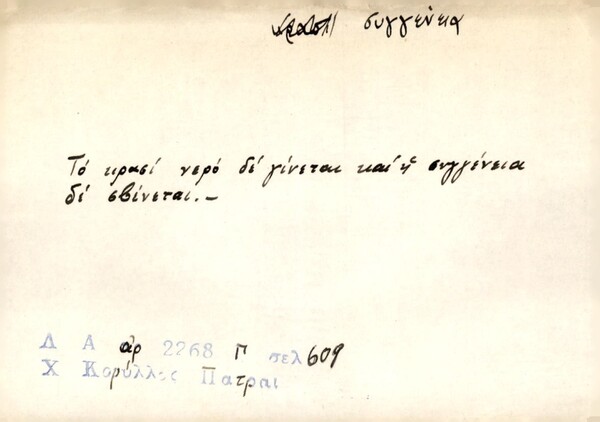 κρασί συγγένεια
Τό κρασί νερό δέ γίνεται καί ἡ συγγένεια
δέ σβίνεται.—
Λ Α αρ 2268 Γ σελ 609
Χ Κορύλλος Πατραι